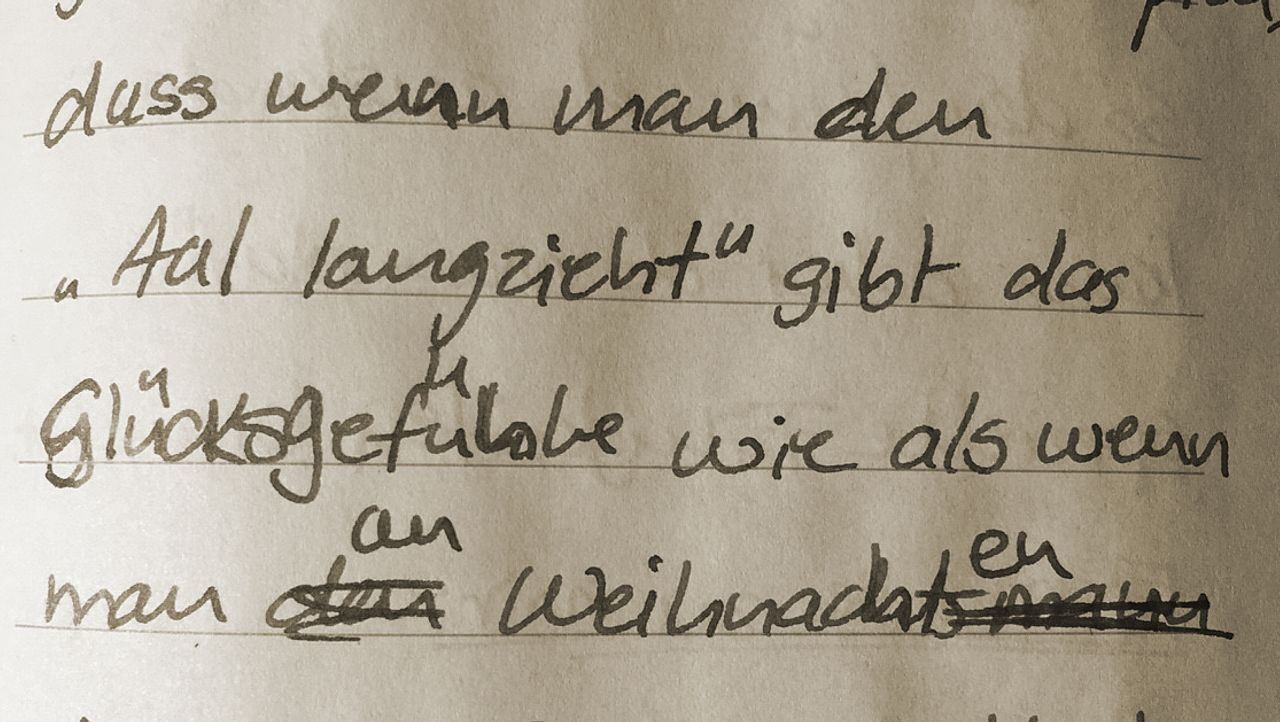 dass wenn man den
„Aal langzieht" gibt das
Glücksgefühle wie als wenn
an en
man den Weihnachtsmann